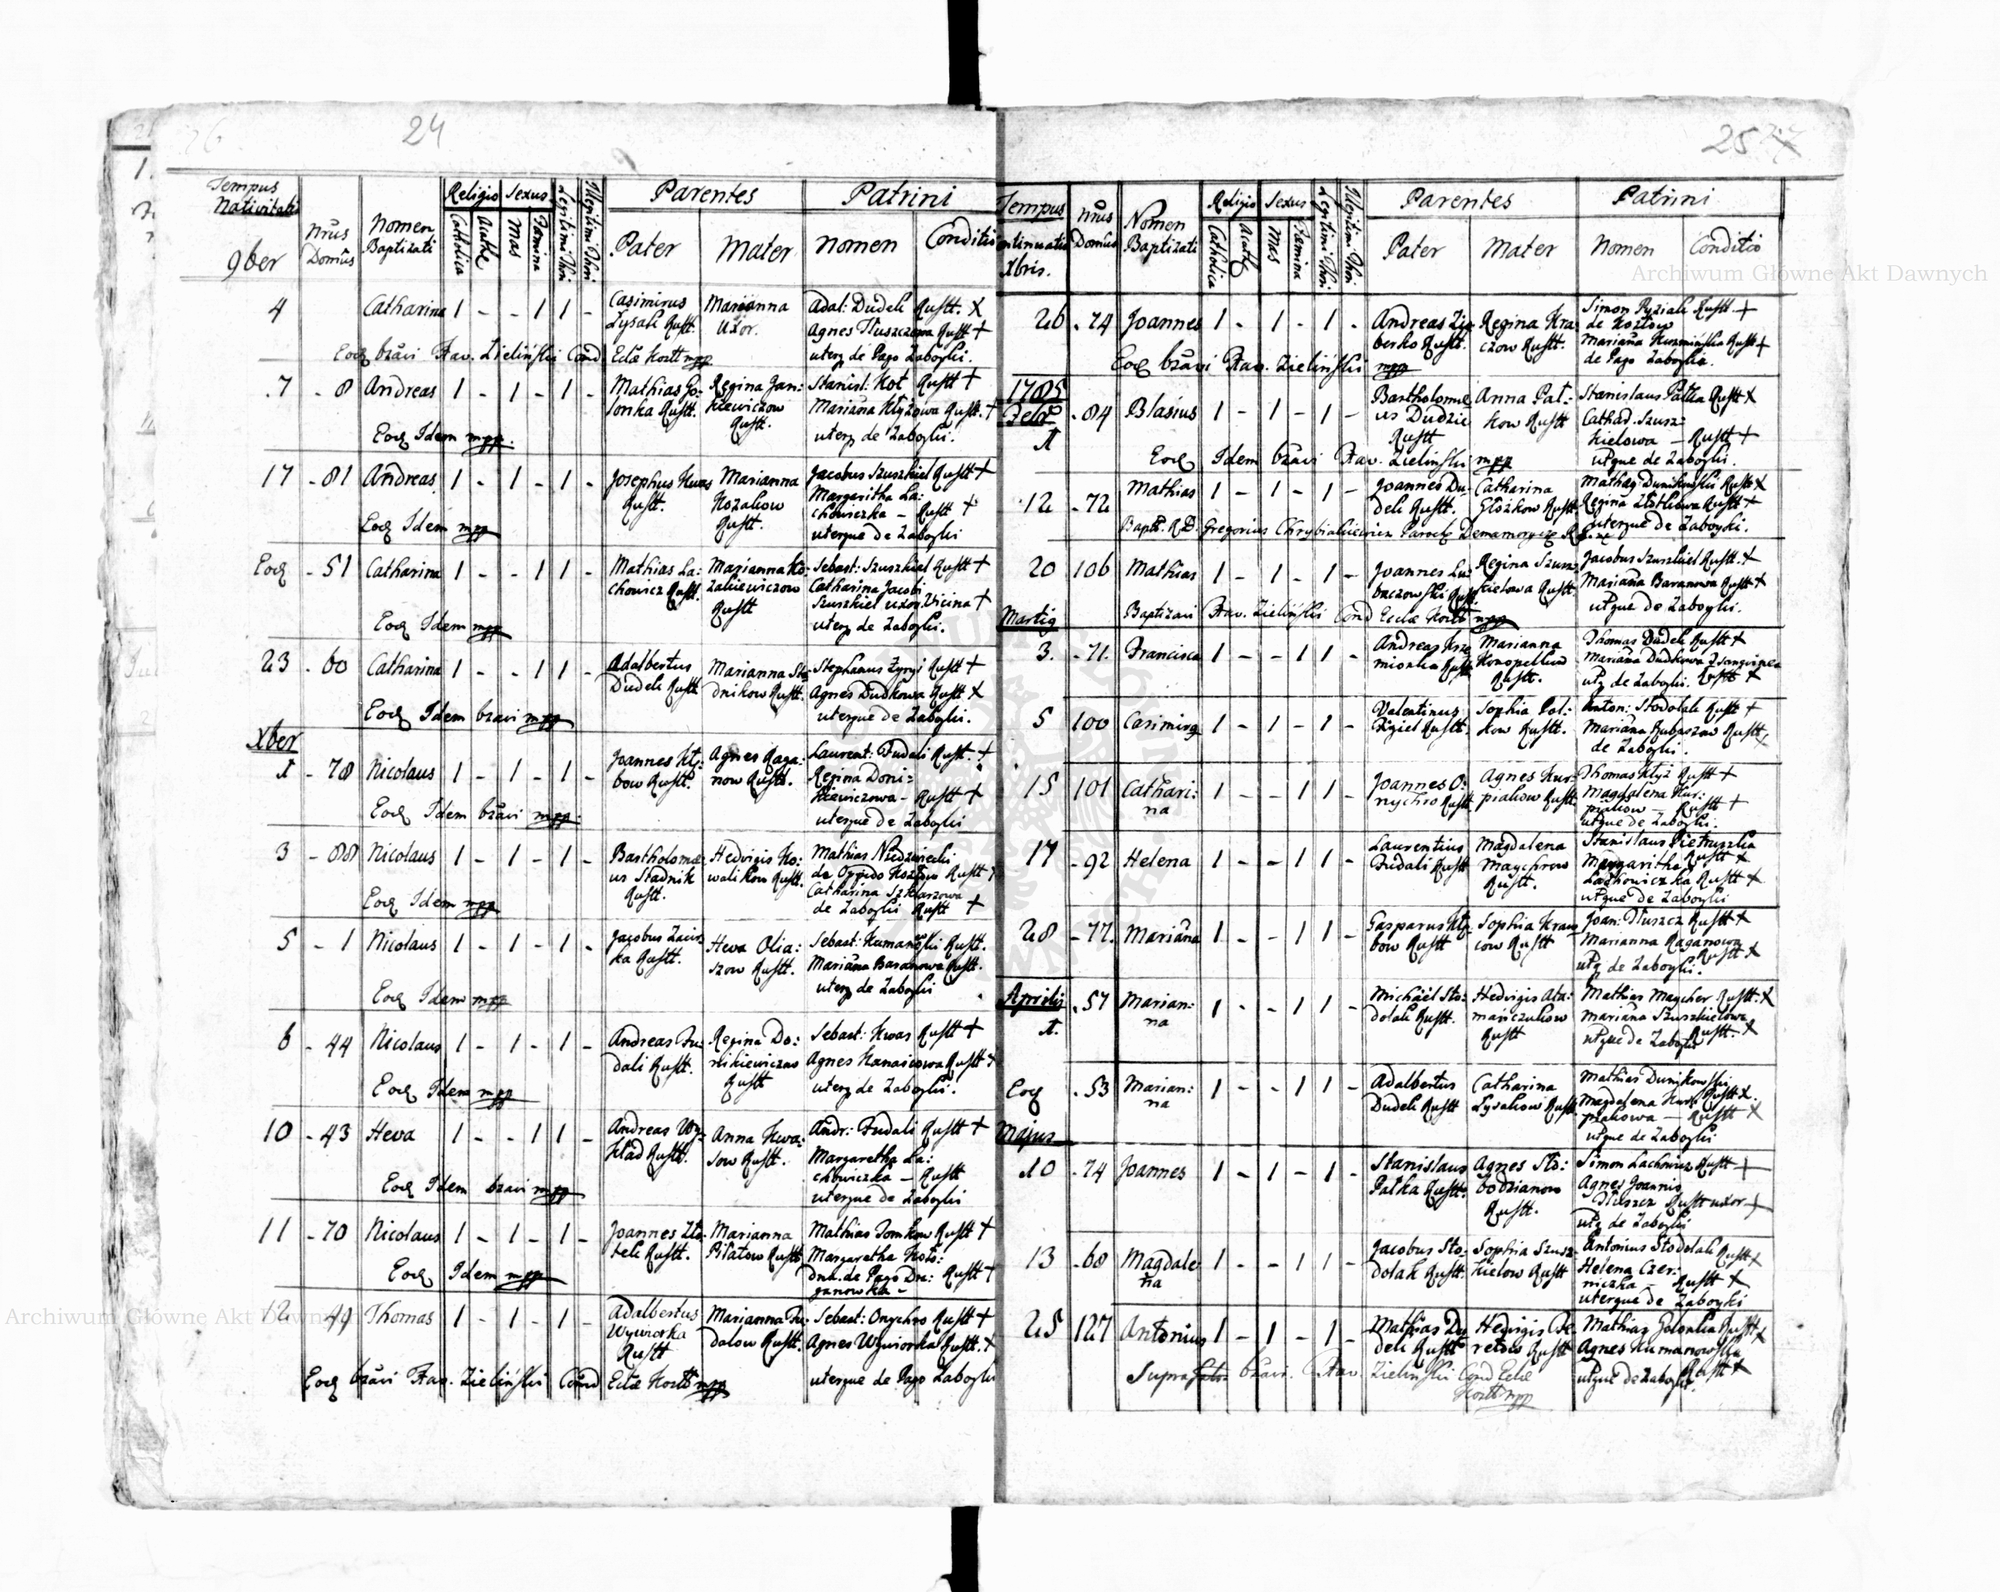 24
Tempus Nativitatis
9ber
Nrus Domus
Nomen Baptizati
Religio
Catholica
Sexus
Mas
Femina
Legitimi Thori
Illegitimi Thori
Parentes
Pater
Mater
Patrini
Nomen
Conditio
4 Catharina 1 - - 1 1 -
Casimirus Lysak Rustt.
Marianna Uxor.
Adal: Dudek Rustt. X
Agnes Tłuszczowa Rustt +
uterq de Pago Zaboyki.
Eod bravi Frav. Zieliński Cond Eclae Kozlt mpp
7 - 8 Andreas 1 - 1 - 1 -
Regina Jan:
kiewiczow
Rustt.
Stanisl: Kot Rustt +
Marianna Klyżowa Rustt. +
uterq de Zaboyki.
Eod Idem mpp.
17 - 81 Andreas 1 - 1 - 1 -
Josephus Kwas
Rustt.
Marianna
Kozakow
Rustt.
Jacobus Szuszkiel Rustt +
Margaritha La:
chowiczka - Rustt +
uterque de Zaboyki
Eod Idem mpp
Eod - 51 Catharina 1 - - 1 1 -
Mathias La:
chowicz Rustt.
Marianna Ko:
zakiewiczow
Rustt
Sebast: Szuszkiel Rustt +
Catharina Jacobi
Szuszkiel uxor. Vicina +
uterq de Zaboyki.
Eod Idem mpp
23 - 60 Catharina 1 - - 1 1 -
Adalbertus
Dudek Rustt
Marianna Sta:
dnikow Rustt.
Stephanus Zyzyi Rustt +
Agnes Dudkowa Rustt X
uterque de Zaboyki.
Eod Idem bravi mpp
Xber
1 - 78 Nicolaus 1 - 1 - 1 -
Joannes Kłę:
bow Rustt.
Agnes Raga:
now Rustt.
Laurent: Fudali Rustt. +
Regina Doni:
kiewiczowa - Rustt +
uterque de Zaboyki
Eod Idem bravi mpp.
3 - 88 Nicolaus 1 - 1 - 1 -
Bartholomae:
us Stadnik
Rustt.
Hedvigis Ko:
walikow Rustt.
Mathias Niedzwiecki
de Oppido Kozłow Rustt +
Catharina Szklarzowa
de Zaboyki Rustt +
Eod Idem mpp
5 - 1 Nicolaus 1 - 1 - 1 -
ka Rustt.
Heva Olia:
szow Rustt.
Sebast: Kumański Rustt.
Marianna Baranowa Rustt.
uterq de Zaboyki
Eod Idem mpp
6 - 44 Nicolaus 1 - 1 - 1 -
Andreas Fu:
dali Rustt.
Regina Do:
nikiewiczow
Rustt
Sebast: Kwas Rustt +
Agnes Kanasiowa Rustt +
uterq de Zaboyki.
Eod Idem mpp
10 - 43 Heva 1 - - 1 1 -
Andreas Wy:
kład Rustt.
Anna Kwa:
sow Rustt.
Andr: Fudali Rustt +
Margaretha La:
chowiczka - Rustt
uterque de Zaboyki
Eod Idem bravi mpp
11 - 70 Nicolaus 1 - 1 - 1 -
Marianna
Piłatow Rustt
Mathias Tomkow Rustt +
Eod Idem mpp
12 - 49 Thomas 1 - 1 - 1 -
Adalbertus
Wywiorka
Rustt
Marianna Fu:
dalow Rustt.
Sebast: Onychro Rustt +
Agnes Wywiorka Rustt. X
uterque de Pago Zaboyki
Eod bravi Frav. Zieliński Cond Eclae Kozlt mpp
25
Tempus
Xbris.
Nrus Domus
Nomen Baptizati
Religio
Catholica
Sexus
Mas
Femina
Legitimi Thori
Illegitimi Thori
Parentes
Pater
Mater
Patrini
Nomen
Conditio
26 - 74 Joannes 1 - 1 - 1 -
Regina Kra:
czow Rustt.
Simon Pyziak Rustt +
de Kozłow
Marianna Kuzminska Rustt +
de Pago Zaboyki.
Eod bravi Frav. Zieliński mpp
1785
Febr
1 - 84 Blasius 1 - 1 - 1 -
Bartholomae
us Dudzic
Rustt
Anna Pał:
kow Rustt
Stanislaus Pałka Rustt X
Cathar. Szusz:
kielowa - Rustt +
utque de Zaboyki.
Eod Idem bravi Frav. Zieliński mpp
12 - 72 Mathias 1 - 1 - 1 -
Joannes Du:
dek Rustt.
Catharina
Głożkow Rustt.
Mathias Dunikowski Rustt X
uterque de Zaboyki.
Bapt. R.D. Gregorius Chrybiakiewicz Paroch Denamoryc
20 106 Mathias 1 - 1 - 1 -
Joannes Lu:
baczowski Rustt
Regina Szusz:
kielowa Rustt.
Jacobus Szuszkiel Rustt. +
Marianna Baranowa Rustt +
utque de Zaboyki.
Baptizavi Frav. Zieliński Cond Eclae Kozlt mpp
Martig
3. - 71. Francisca 1 - - 1 1 -
Marianna
Konopellow
Rustt.
Thomas Dudek Rustt +
utq de Zaboyki. Rustt +
5 100 Casimirg 1 - 1 - 1 -
Valentinus
Figiel Rustt.
Sophia Pał:
kow Rustt.
Anton: Stodolak Rustt +
de Zaboyki.
15 101 Cathari:
na 1 - - 1 1 -
Joannes O:
nychro Rustt
Agnes Kur:
piakow Rustt.
Thomas Klyż Rustt +
Magdalena Kur:
piakow - Rustt +
utque de Zaboyki.
17 - 92 Helena 1 - - 1 1 -
Laurentius
Fudali Rustt
Magdalena
Maychrow
Rustt.
Stanislaus Pietruszka
Margaritha Rustt +
Lachowiczka Rustt +
utque de Zaboyki
28 - 77. Marianna 1 - - 1 1 -
Gasparus Kłę:
bow Rustt
Sophia Kraw
cow Rustt
Joan: Tłuszcz Rustt +
Marianna Raganowa
Rustt +
utq de Zaboyki.
Aprilis
1. - 57 Marian:
na 1 - - 1 1 -
Michael Sto:
dolak Rustt.
Hedvigis Ata:
manczukow
Rustt
Mathias Maycher Rustt. X
Marianna Szuszkielowa
utque de Zaboyki Rustt. X
Eod - 53 Marian:
na 1 - - 1 1 -
Adalbertus
Dudek Rustt
Catharina
Lysakow Rustt
Mathias Dunikowski
Magdalena Kur: Rustt X.
piakowa - Rustt X
utque de Zaboyki
Majus
10 - 74 Joannes 1 - 1 - 1 -
Stanislaus
Pałka Rustt.
Agnes Sło:
bodzianow
Rustt.
Simon Lachowicz Rustt +
Agnes Joannis
Tłuszcz Rustt uxor +
utq de Zaboyki
13 - 68 Magdale
na 1 - - 1 1 -
Jacobus Sto:
dolak Rustt.
Sophia Szusz
kielow Rustt
Antonius Stodolak Rustt +
Helena Czer:
niczka - Rustt +
uterque de Zaboyki
25 127 Antonius 1 - 1 - 1 -
Mathias Du
dek Rustt
Hedvigis Fe
retow Rustt
Mathias Golonka Rustt +
Agnes Kumanowska
Rustt +
utque de Zaboyki.
Supra bravi. Frav. Zieliński Cond Eclae
Kozlt mpp
Archiwum Główne Akt Dawnych
Archiwum Główne Akt Dawnych